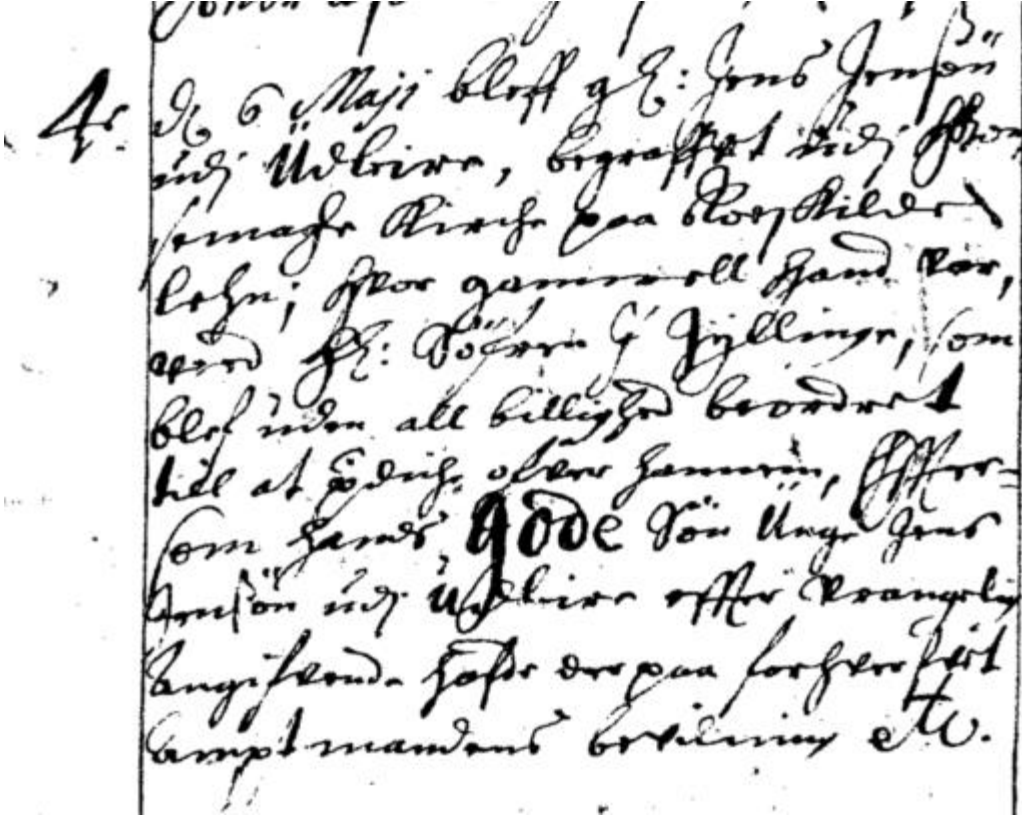 4.
d. 6 Maji bleff gl: Jens Jensön
udj Üdleire, begraffvet udj
Kirche paa Roeskilde
lehn; hvor gammell hand var,
ved Hr: Söfren i Jyllinge, som
blef uden all billighed beordret
till at prædiche ofver hannem, Effter-
som hands gode Sön Unge Jens
Jensön udj Udleire effter Vrangelig
Angifvende hafde der paa forhverfvet
Amptmandens bevilning etc.